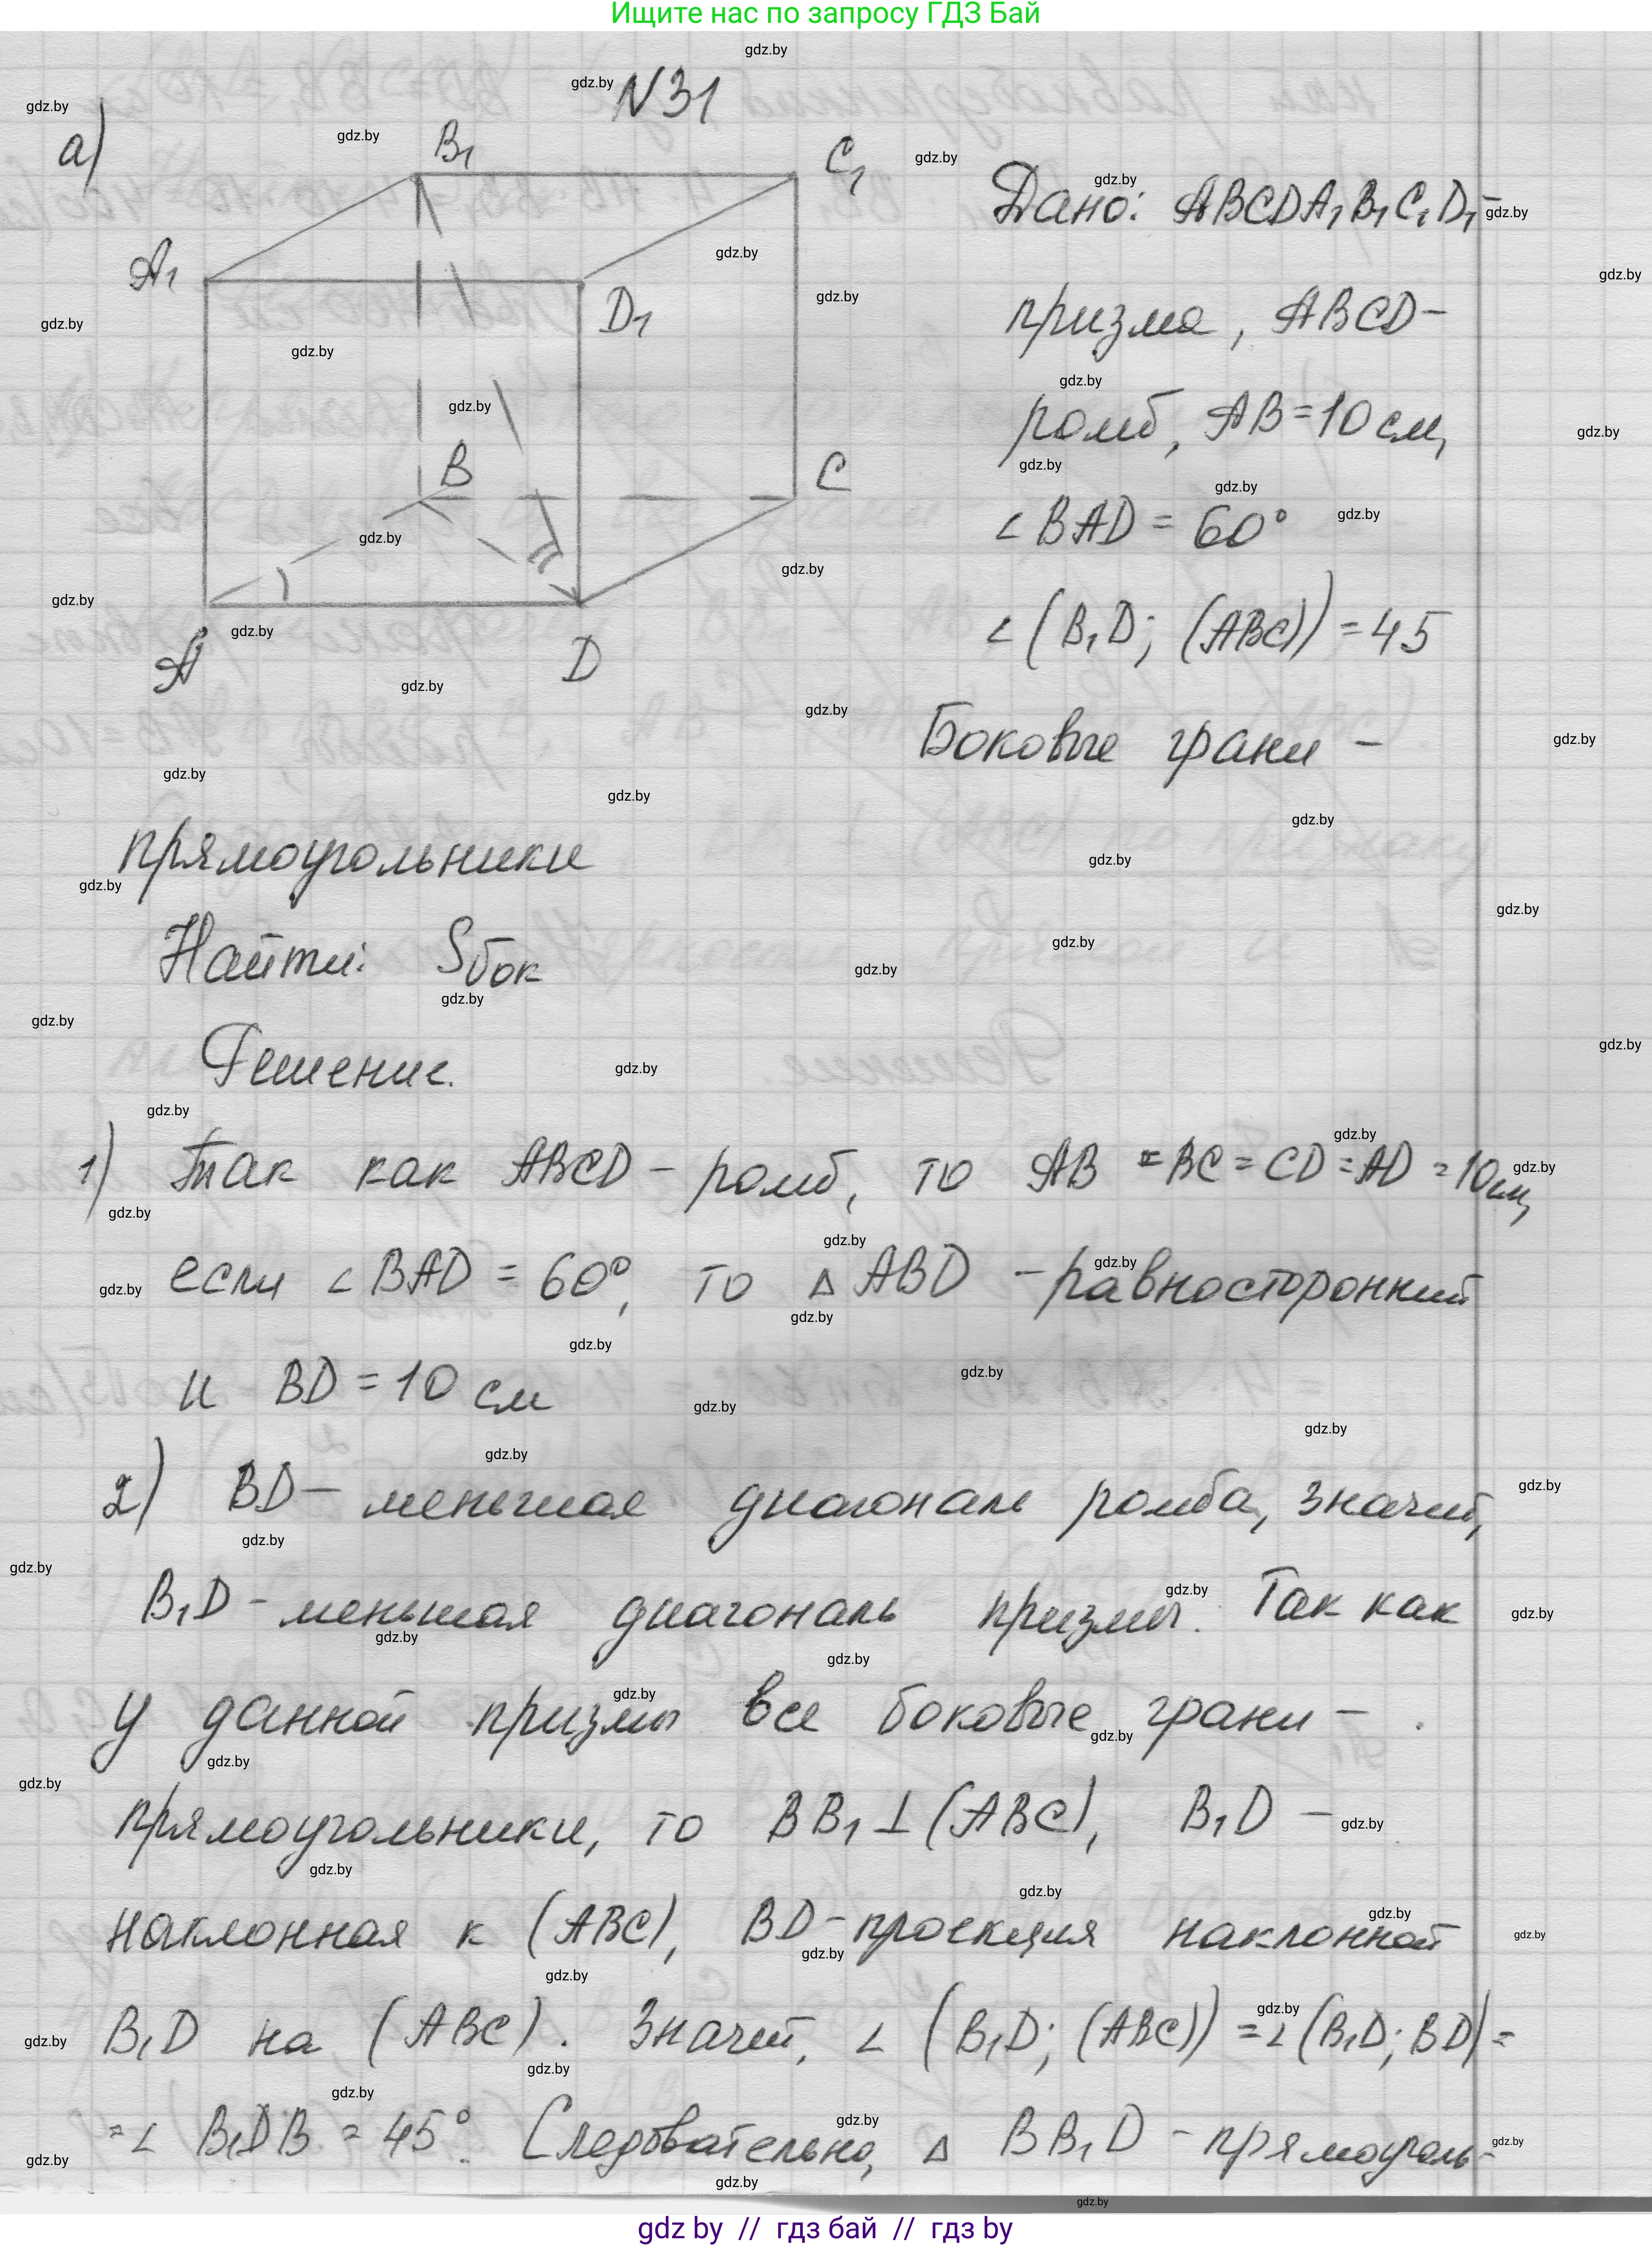 Ищите нас по запросу ГДЗ Бай
N31
а)
B₁
C₁
A₁
D₁
B
C
A
D
Дано: ABCDA₁B₁C₁D₁-
призма, ABCD-
ромб, AB=10 см,
∠BAD = 60°
∠(B₁D; (ABC)) = 45
Боковые грани -
прямоугольники
Найти: Sбок
Решение.
1) Так как ABCD - ромб, то AB = BC = CD = AD = 10см,
если ∠BAD = 60°, то △ABD - равносторонний
и BD = 10 см
2) BD - меньшая диагональ ромба, значит,
B₁D - меньшая диагональ призмы. Так как
у данной призмы все боковые грани -
прямоугольники, то BB₁⊥(ABC), B₁D -
наклонная к (ABC), BD - проекция наклонной
B₁D на (ABC). Значит, ∠(B₁D; (ABC)) = ∠(B₁D; BD) =
= ∠B₁DB = 45°. Следовательно, △BB₁D - прямоуголь-
gdz by // гдз бай // гдз by